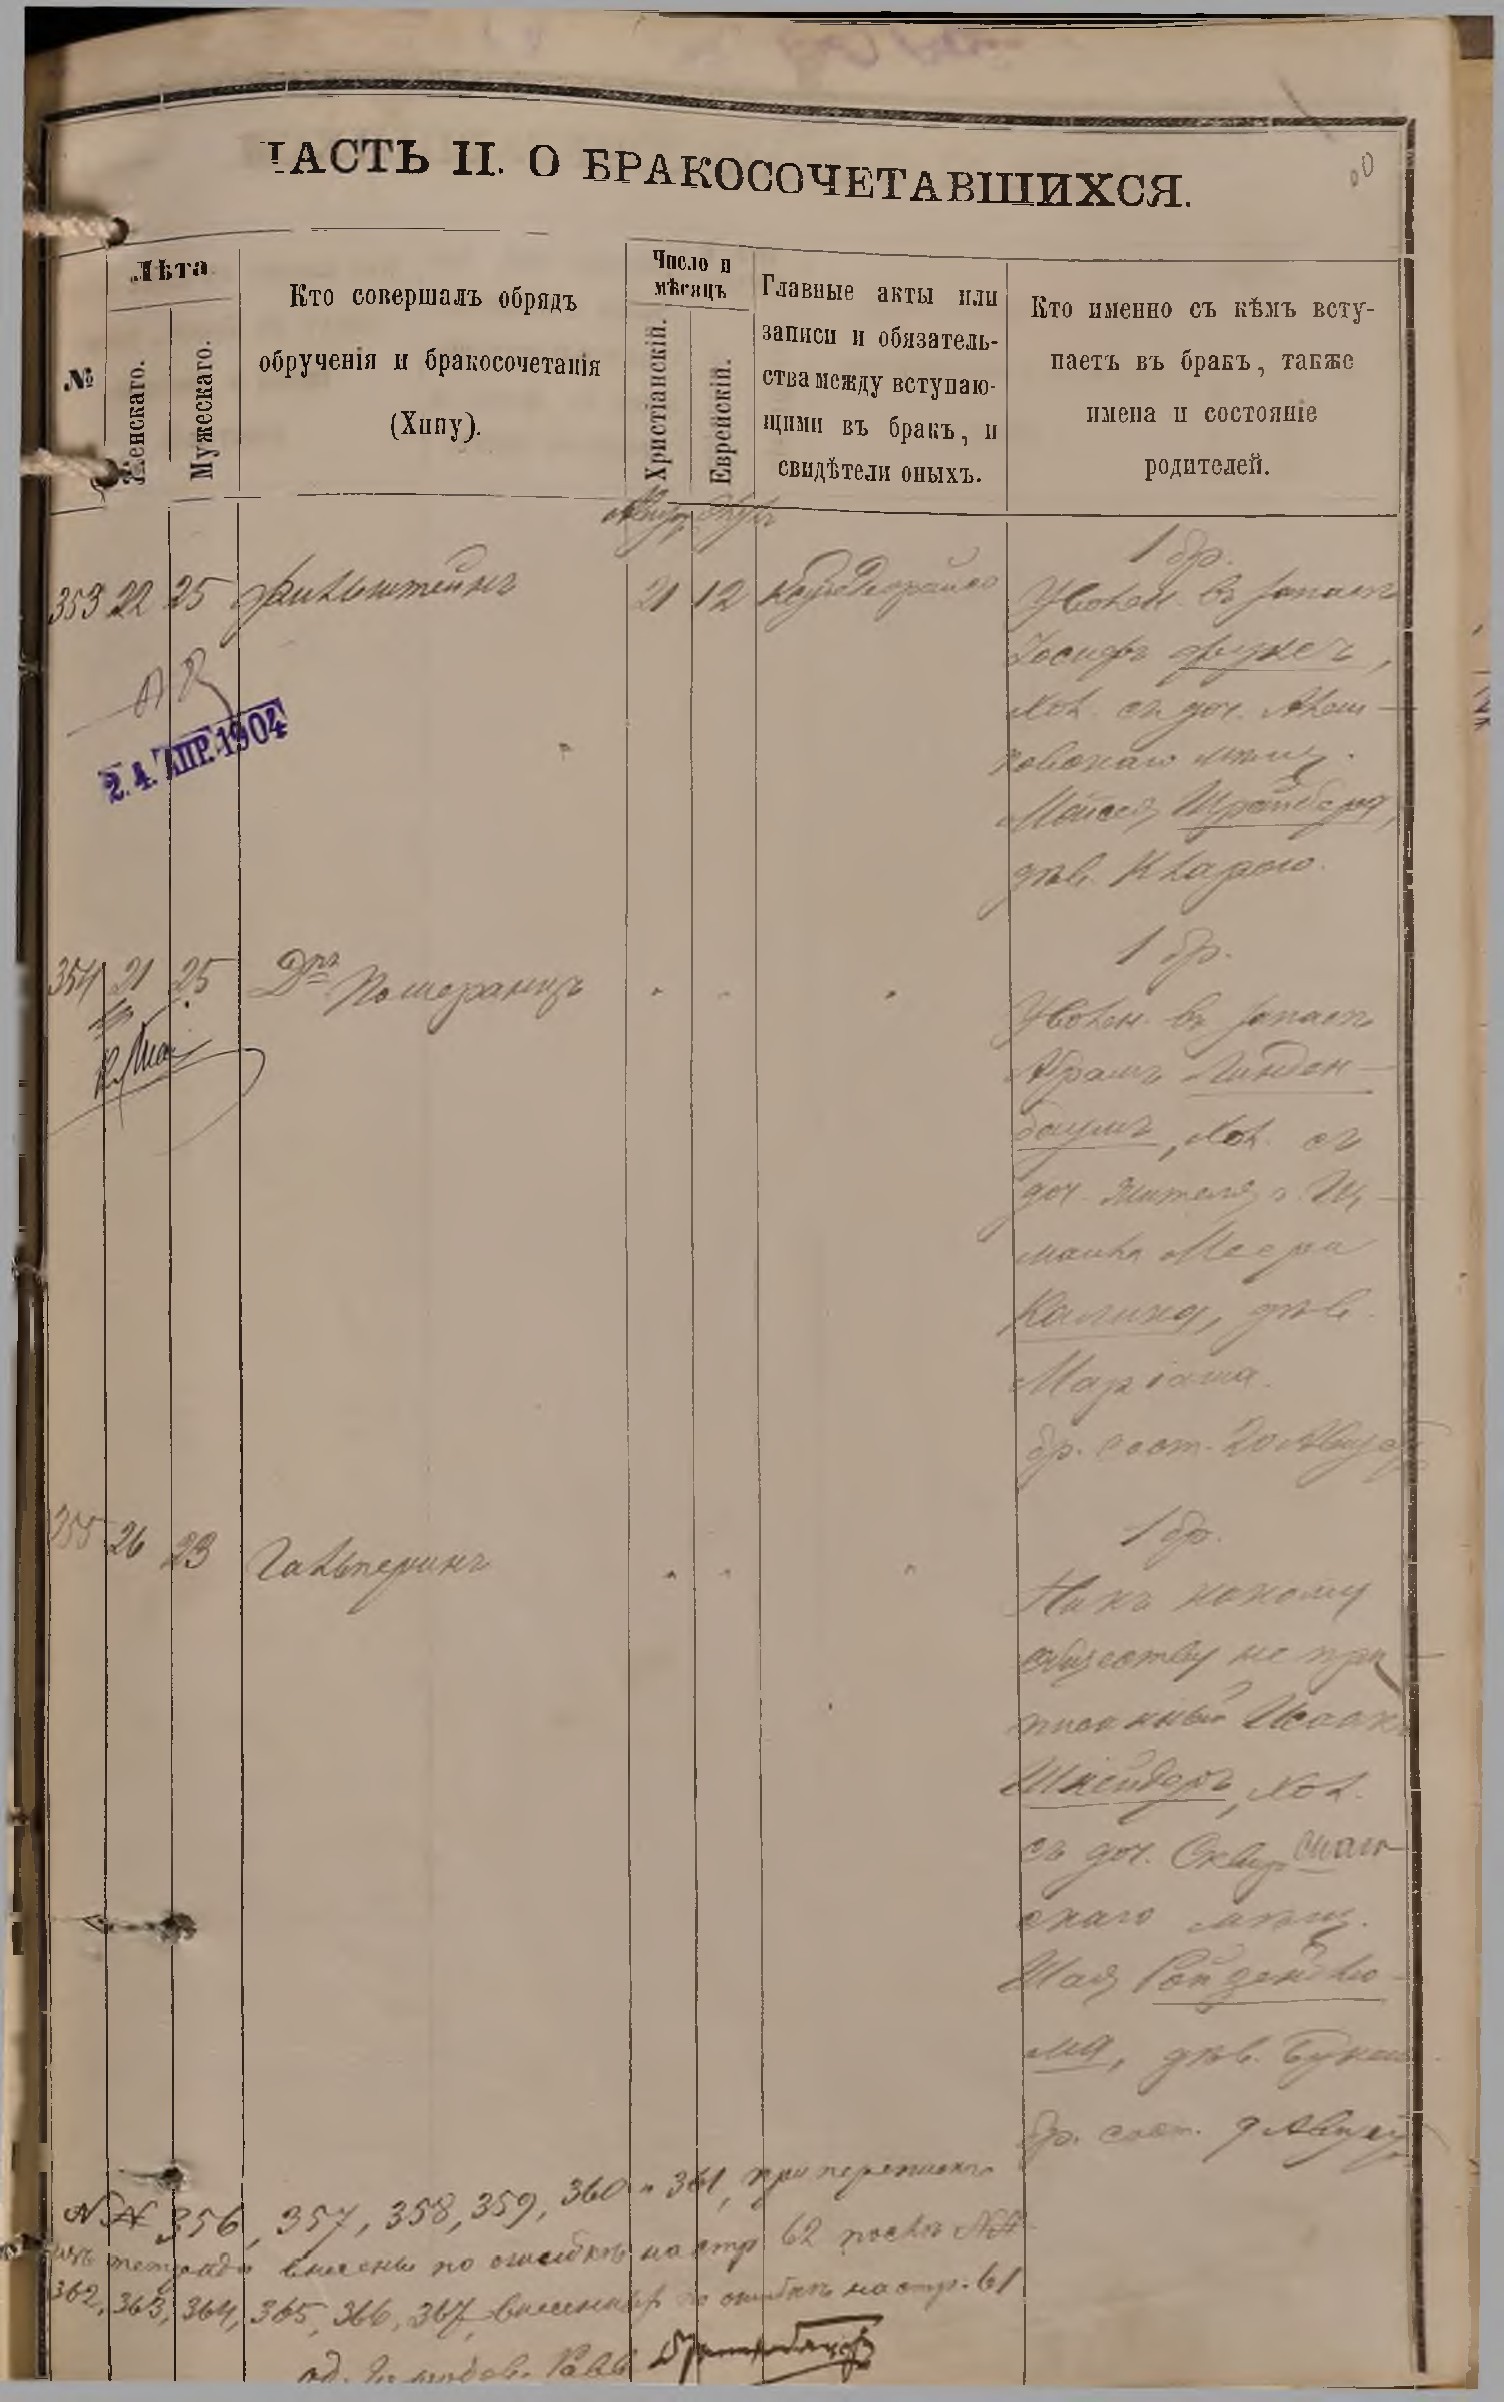 ЧАСТЬ II. О БРАКОСОЧЕТАВШИХСЯ.
№
Лѣта
Женскаго.
Мужескаго.
Кто совершалъ обрядъ
обрученія и бракосочетанія
(Хипу).
Число и
мѣсяцъ
Христіанскій.
Еврейскій.
Главные акты или
записи и обязатель-
ства между вступаю-
щими въ бракъ, и
свидѣтели оныхъ.
Кто именно съ кѣмъ всту-
паетъ въ бракъ, также
имена и состояніе
родителей.
353 22 25
21 12
1 бр.
Уволен. въ запасъ
Іосифъ
хол. съ доч.
мѣщ.
Моисея
дѣв. Кларою.
24 АПР. 1904
354 21 25 Дръ Померанцъ
1 бр.
Уволен. въ запасъ
Абрамъ Линден-
баумъ, хол. съ
доч. жителя
Меера
Калика, дѣв.
Маріама.
бр. сост. 20 Август
355 26 23 Гальперинъ
1 бр.
Ни къ какому
обществу не при
писанный Исаакъ
Шнейдеръ, хол.
съ доч. Сквир
скаго мѣщ.
Шая Ройзенблю-
ма, дѣв.
бр. сост. 9 Август
№№ 356, 357, 358, 359, 360 и 361, при перепискѣ
изъ тетради внесены по ошибкѣ на стр 62 послѣ №№
362, 363, 364, 365, 366, 367, внесенныхъ по ошибкѣ на стр. 61